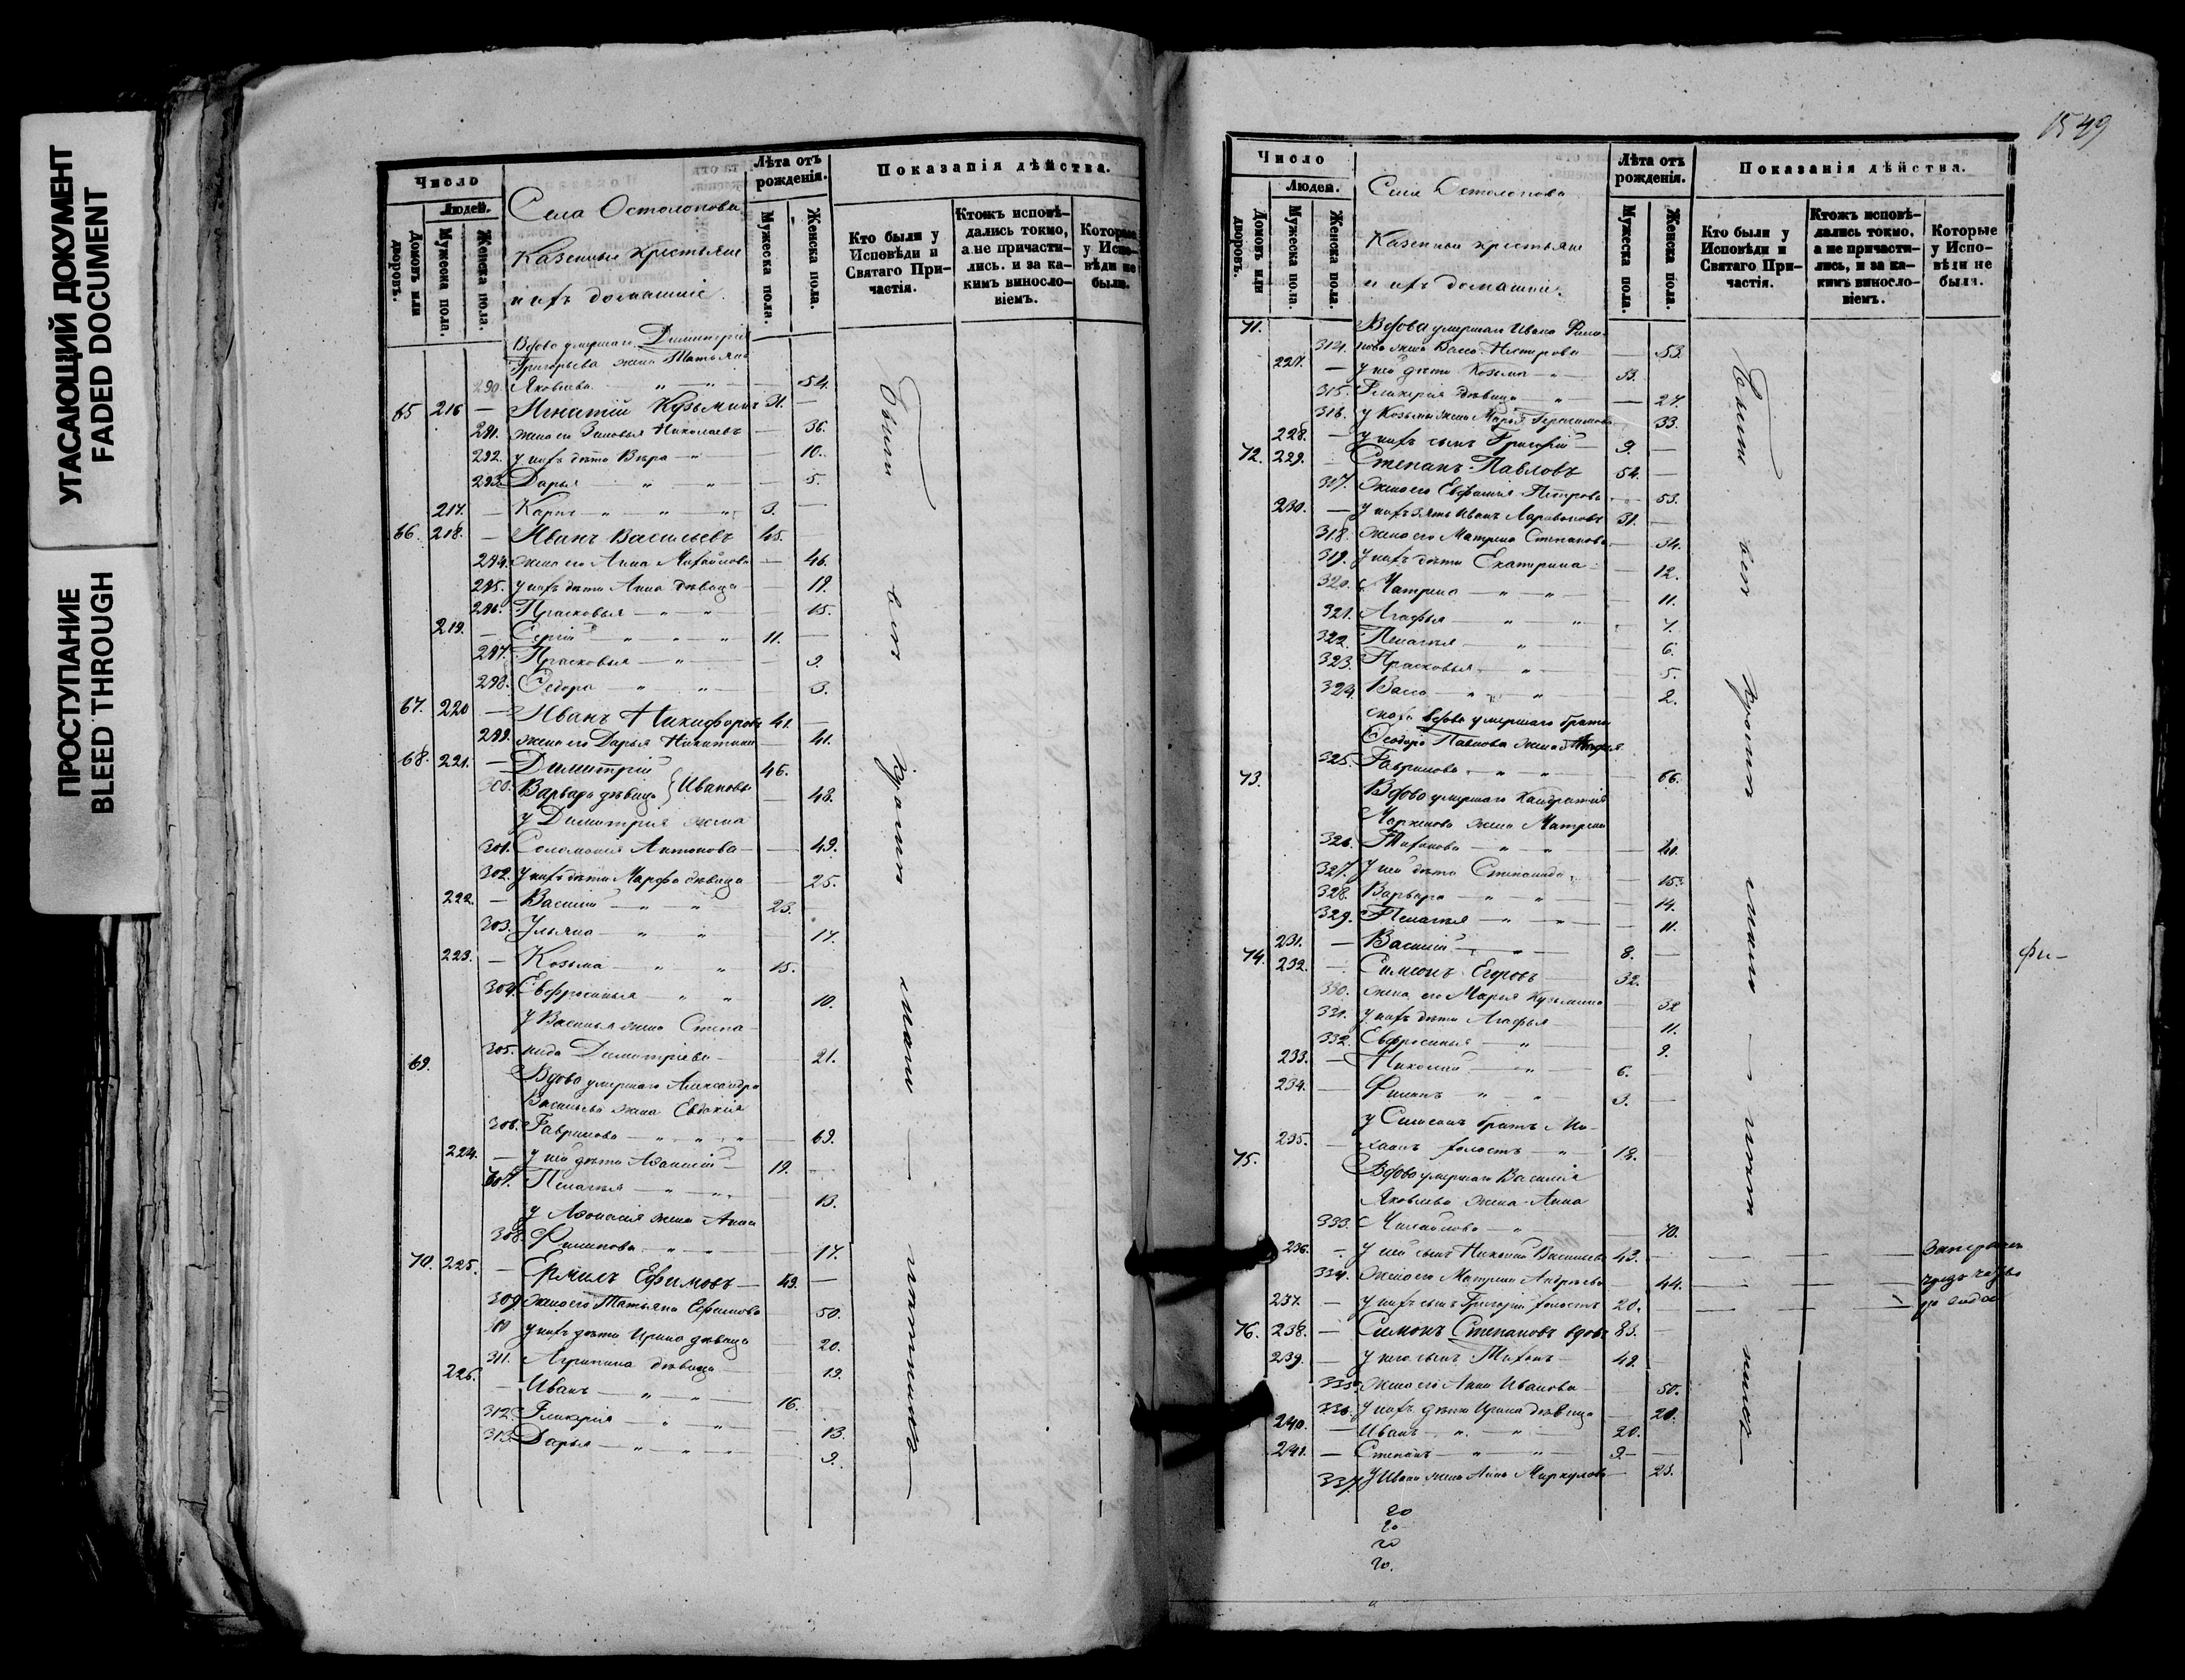 УГАСАЮЩИЙ ДОКУМЕНТ
FADED DOCUMENT
ПРОСТУПАНИЕ
BLEED THROUGH
Число
Людей.
Домовъ или дворовъ.
Мужеска пола.
Женска пола.
Села Остолопова
Казенные крестьяне
и ихъ домашніе.
Лѣта отъ рожденія.
Мужеска пола.
Женска пола.
Показанія дѣйства.
Кто были у Исповѣди и Святаго Причастія.
Ктожъ исповѣдались токмо, а не причастились, и за какимъ винословіемъ.
Которые у Исповѣди не были.
Вдова умершаго Димитрія
Григорьева жена Татьяна
290. Яковлева — 54.
65 216 — Игнатій Кузьминъ 31. —
291. жена его Зиновья Николаевъ — 36.
292. у нихъ дѣти Вѣра — 10.
293. Дарья — 5.
217. — Карпъ 3. —
66. 218. — Иванъ Васильевъ 45. —
294. жена его Анна Михайлова — 46.
295. у нихъ дѣти Анна дѣвица — 19.
296. Прасковья — 15.
219. — Сергій 11. —
297. Прасковья — 9.
298. Ѳедора — 3.
67. 220 — Иванъ Никифоровъ 41. —
299. жена его Дарья Никитина — 41.
68. 221. — Димитрій 46.
300. Варвара дѣвица } Ивановы — 48.
у Димитрія жена
301. Соломонія Антонова — 49.
302. у нихъ дѣти Марфа дѣвица — 25.
222. — Василій 23.
303. Ульяна 17.
223. — Козьма 15.
304. Евфросинья 10.
у Василья жена Степа-
305. нида Димитріева — 21.
69. Вдова умершаго Александра
Васильева жена Евдокія
306. Гаврилова — 69.
224. — у ней дѣти Аѳанасій 19. —
307. Пелагея 13.
у Аѳанасія жена Анна
308. Филипова 17.
70. 225. — Ермилъ Ефимовъ — 49. —
309. жена его Татьяна Ефимова 50.
310 у нихъ дѣти Ирина дѣвица — 20.
311. Агрипина дѣвица 19.
226. — Иванъ 16.
312. Гликерія — 13.
313. Дарья — 9.
Были вси кромѣ мало-лѣтнихъ
1549
Число
Людей.
Домовъ или дворовъ.
Мужеска пола.
Женска пола.
Села Остолопова
Казенныи крестьяне
и ихъ домашніи.
Лѣта отъ рожденія.
Мужеска пола.
Женска пола.
Показанія дѣйства.
Кто были у Исповѣди и Святаго Причастія.
Ктожъ исповѣдались токмо, а не причастились, и за какимъ винословіемъ.
Которые у Исповѣди не были.
71. Вдова умершаго Ивана Фили-
314. пова жена Васса Нестерова — 53.
227. — у ней дѣти Козьма 33.
315. Гликерія дѣвица — 27.
316. у Козьмы жена Марья Герасимова 33.
228. — у нихъ сынъ Григорій 9. —
72. 229. — Степанъ Павловъ 54. —
317. жена его Евфимія Петрова — 53.
230. — у нихъ зять Иванъ 31. —
318. жена его Матрена Степанова — 34.
319. у нихъ дѣти Екатерина — 12.
320. Матрена — 11.
321. Агафья 7.
322. Пелагея 6.
323. Прасковья 5.
324. Васса — 2.
сноха вдова умершаго брата
Ѳеодора Павлова жена
325. Гаврилова — 66.
73. Вдова умершаго Кондратія
Маркелова жена Матрена
326. Тихонова — 41.
327. у ней дѣти Степанида 15.
328. Варвара — 14.
329. Пелагея — 11.
231. — Василій 8. —
74. 232. — Симеонъ Егоровъ 32.
330. жена его Марья Кузьмина — 32
331. у нихъ дѣти Агафья — 11.
332. Евфросинья 9.
233. — Николай 6.
234. — Филипъ 3. —
у Симеона братъ Ми-
235. — хаилъ холостъ 18. —
75. Вдова умершаго Василія
Яковлева жена Анна
333. Михайлова — 70.
236. — у ней сынъ Николай Васильевъ 43. —
334. жена его Матрена Андреева — 44.
237. — у нихъ сынъ Григорій холостъ 20. —
76. 238. — Симонъ Степановъ вдовъ 83. —
239. — у него сынъ Тихонъ 49. —
335. жена его Анна Иванова — 50.
336. у нихъ дѣти Ирина дѣвица 20.
240. — Иванъ 20.
241. — Степанъ 9 —
337. у Ивана жена Анна Меркулова 23.
Были вси кромѣ мало-лѣтнихъ
20
20
20
20.